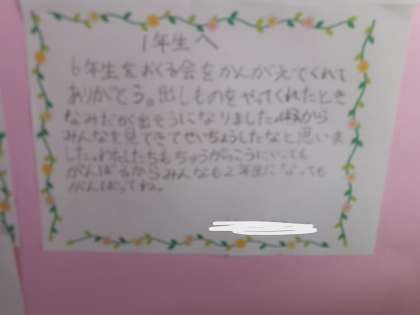 1年生へ
6年生をおくる会をかんがえてくれて
ありがとう。出しものをやってくれたとき
なみだが出そうになりました。から
みんなを見てきてせいちょうしたなと思いま
した。わたしたちもちゅうがっこうにいっても
がんばるからみんなも2年生になっても
がんばってね。